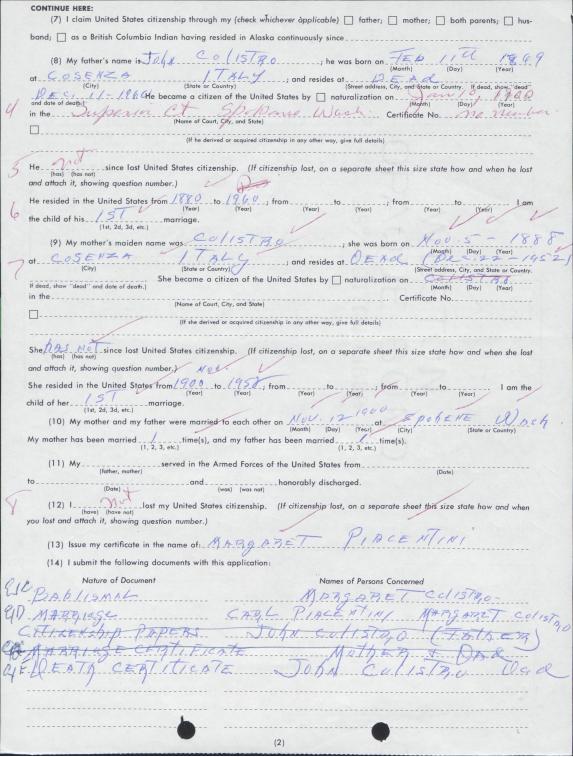 CONTINUE HERE:
(7) I claim United States citizenship through my (check whichever applicable) father; mother; both parents; hus-
band; as a British Columbia Indian having resided in Alaska continuously since
(8) My father's name is John COlISTRO; he was born on FEB 11th 1869
(Month) (Day) (Year)
at COSENZA ITALY; and resides at DEAD
(City) (State or Country) (Street address, City, and State or Country. If dead, show "dead"
DEC. 11-1960 He became a citizen of the United States by naturalization on Jan 18, 1900
and date of death) (Month) (Day) (Year)
4 in the Superior Ct Spokane Wash Certificate No. no number
(Name of Court, City, and State)
(If he derived or acquired citizenship in any other way, give full details)
5 He not since lost United States citizenship. (If citizenship lost, on a separate sheet this size state how and when he lost
(has) (has not)
and attach it, showing question number.)
6 He resided in the United States from 1880 to 1960; from to; from to I am
(Year) (Year) (Year) (Year) (Year) (Year)
the child of his 1ST marriage.
(1st, 2d, 3d, etc.)
(9) My mother's maiden name was COlISTRO; she was born on NOV. 5 - 1888
(Month) (Day) (Year)
7 at COSENZA ITALY; and resides at DEAD (DEC. 22-1952)
(City) (State or Country) (Street address, City, and State or Country.
She became a citizen of the United States by naturalization on COlISTRO
If dead, show "dead" and date of death.) (Month) (Day) (Year)
in the Certificate No.
(Name of Court, City, and State)
(If she derived or acquired citizenship in any other way, give full details)
She has not since lost United States citizenship. (If citizenship lost, on a separate sheet this size state how and when she lost
(has) (has not)
and attach it, showing question number.) Nov.
She resided in the United States from 1900 to 1952; from to; from to I am the
(Year) (Year) (Year) (Year) (Year) (Year)
child of her 1ST marriage.
(1st, 2d, 3d, etc.)
(10) My mother and my father were married to each other on NOV. 12 1900 at SpOKENE Wash.
(Month) (Day) (Year) (City) (State or Country)
My mother has been married 1 time(s), and my father has been married 1 time(s).
(1, 2, 3, etc.) (1, 2, 3, etc.)
(11) My served in the Armed Forces of the United States from
(father, mother) (Date)
to and honorably discharged.
(Date) (was) (was not)
8 (12) I not lost my United States citizenship. (If citizenship lost, on a separate sheet this size state how and when
(have) (have not)
you lost and attach it, showing question number.)
(13) Issue my certificate in the name of: MARGARET PIACENTINI
(14) I submit the following documents with this application:
Nature of Document Names of Persons Concerned
BAPTISMAL MARGARET COlISTRO
MARRIAGE CARL PIACENTINI MARGARET COlISTRO
CITIZENSHIP PAPERS JOHN COlISTRO (FATHER)
MARRIAGE CERTIFICATE MOTHER + DAD
DEATH CERTIFICATE JOHN COlISTRO DAD
(2)